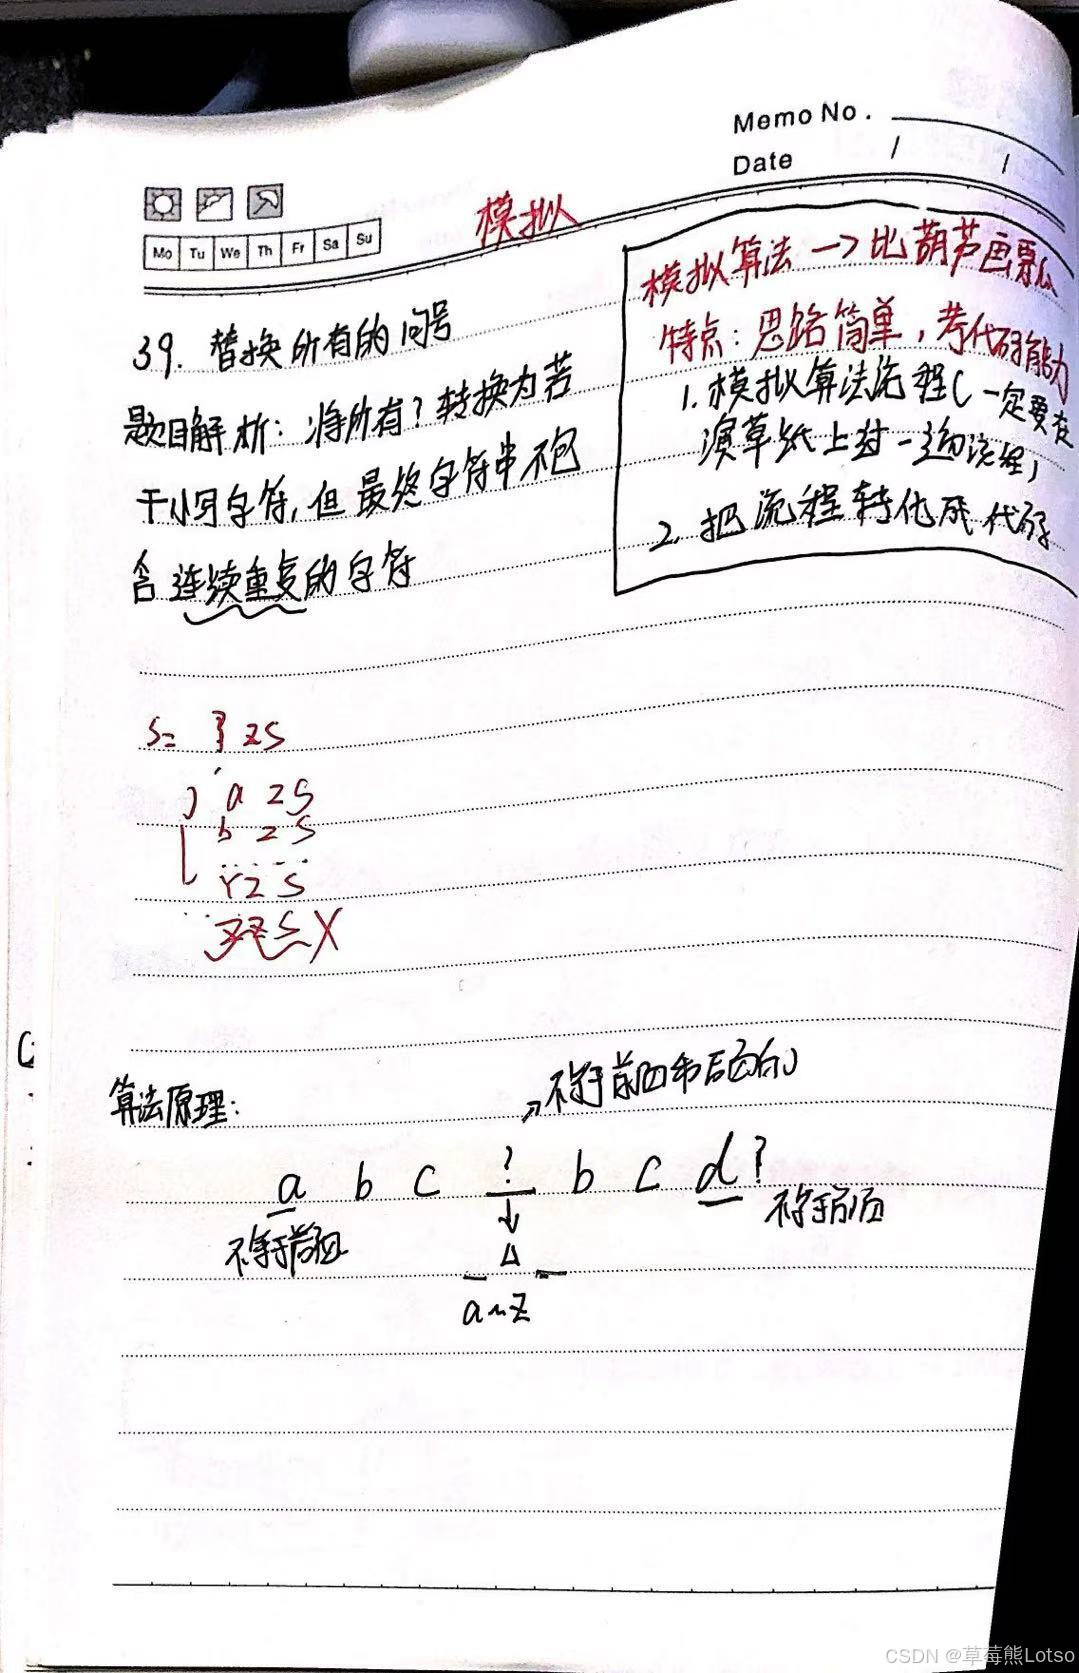 Memo No.
Date / /
Mo Tu We Th Fr Sa Su
模拟
模拟算法 —> 比葫芦画瓢
特点：思路简单，考代码能力
1. 模拟算法流程(一定要在
演草纸上过一遍流程)
2. 把流程转化成代码
39. 替换所有的问号
题目解析：将所有？转换为若
干小写字符，但最终字符串不包
含连续重复的字符
s= ? z s
a z s
b z s
. . . .
y z s
z z s X
算法原理：
不等于前面和后面的
a b c ? b c d ?
不等于后面
不等于前面
a~z
CSDN @草莓熊Lotso